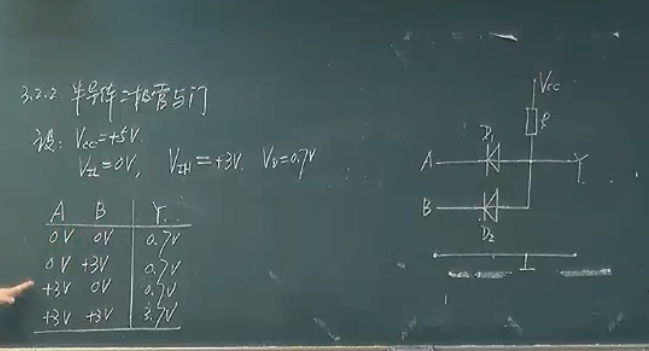 3.2.2 半导体二极管与门
设: Vcc=+5V.
VIL=0V, VIH=+3V. VD=0.7V
A B Y
0V 0V 0.7V
0V +3V 0.7V
+3V 0V 0.7V
+3V +3V 3.7V
Vcc
R
D1
A Y
B
D2